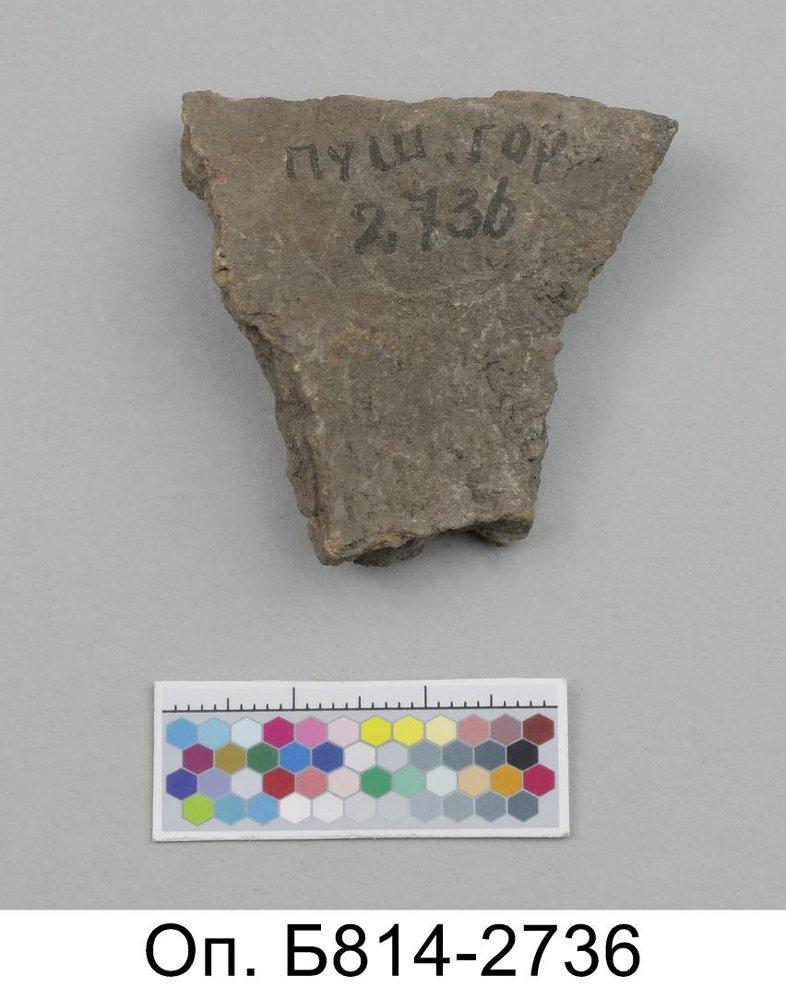 ПУШ. ГОР
2736
Оп. Б814-2736